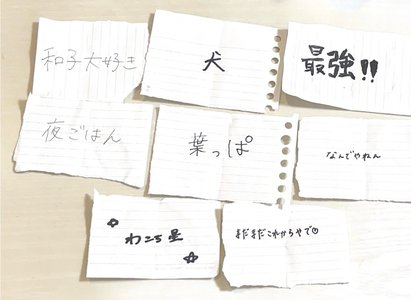 和子大好き
犬
最強!!
夜ごはん
葉っぱ
なんでやねん
わこち星
まだまだこれからやで☺